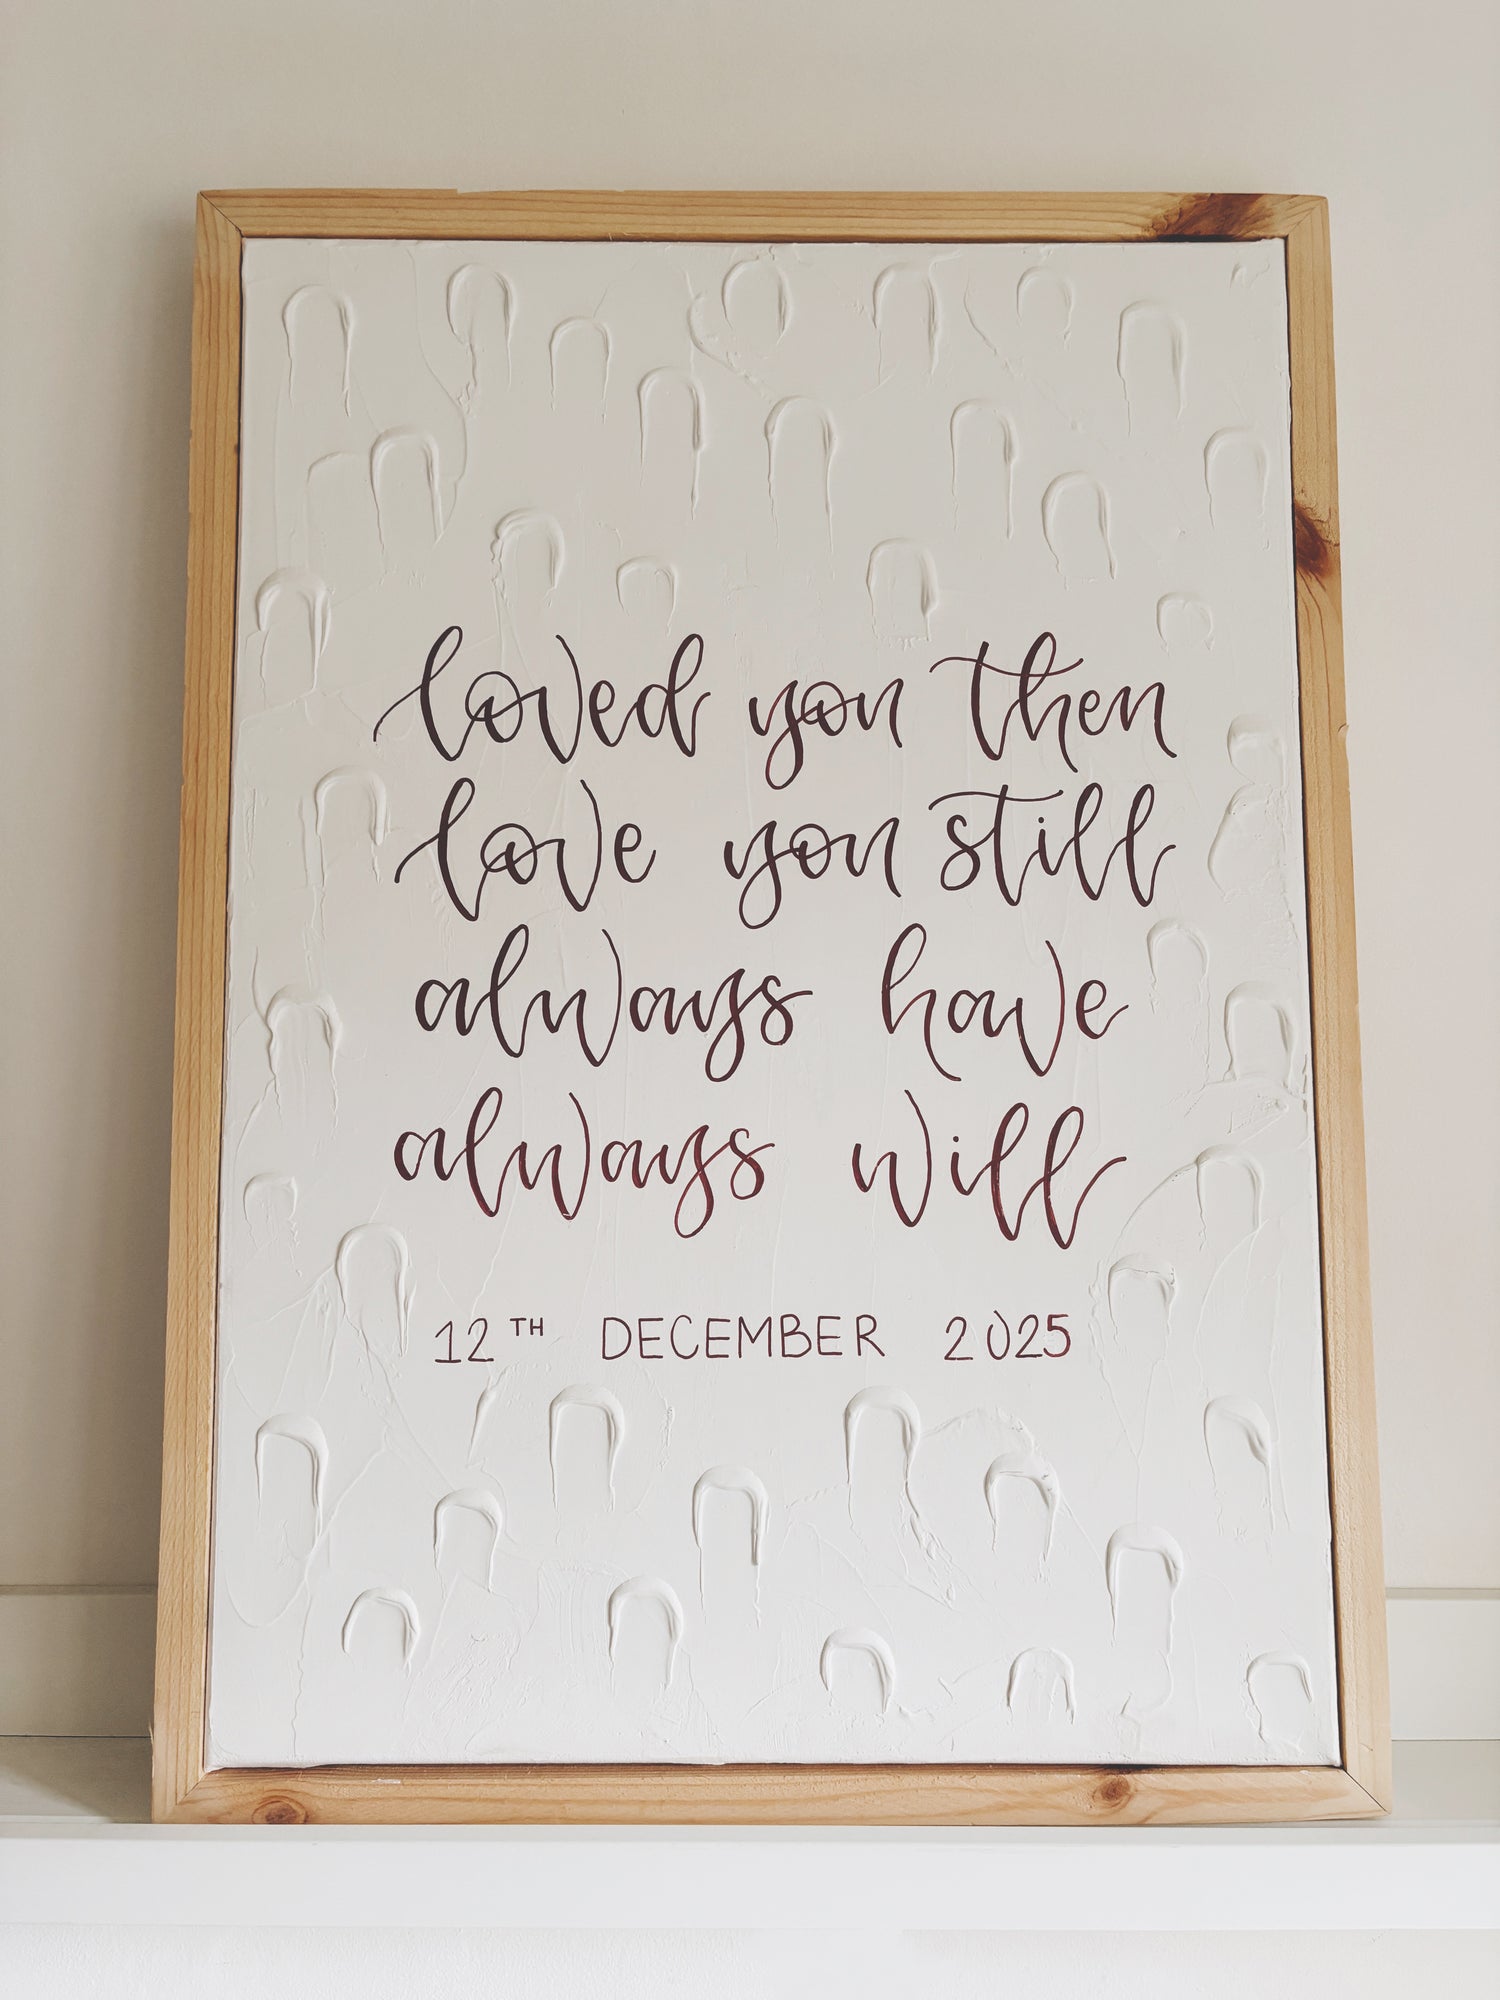 loved you then
love you still
always have
always will
12TH DECEMBER 2025